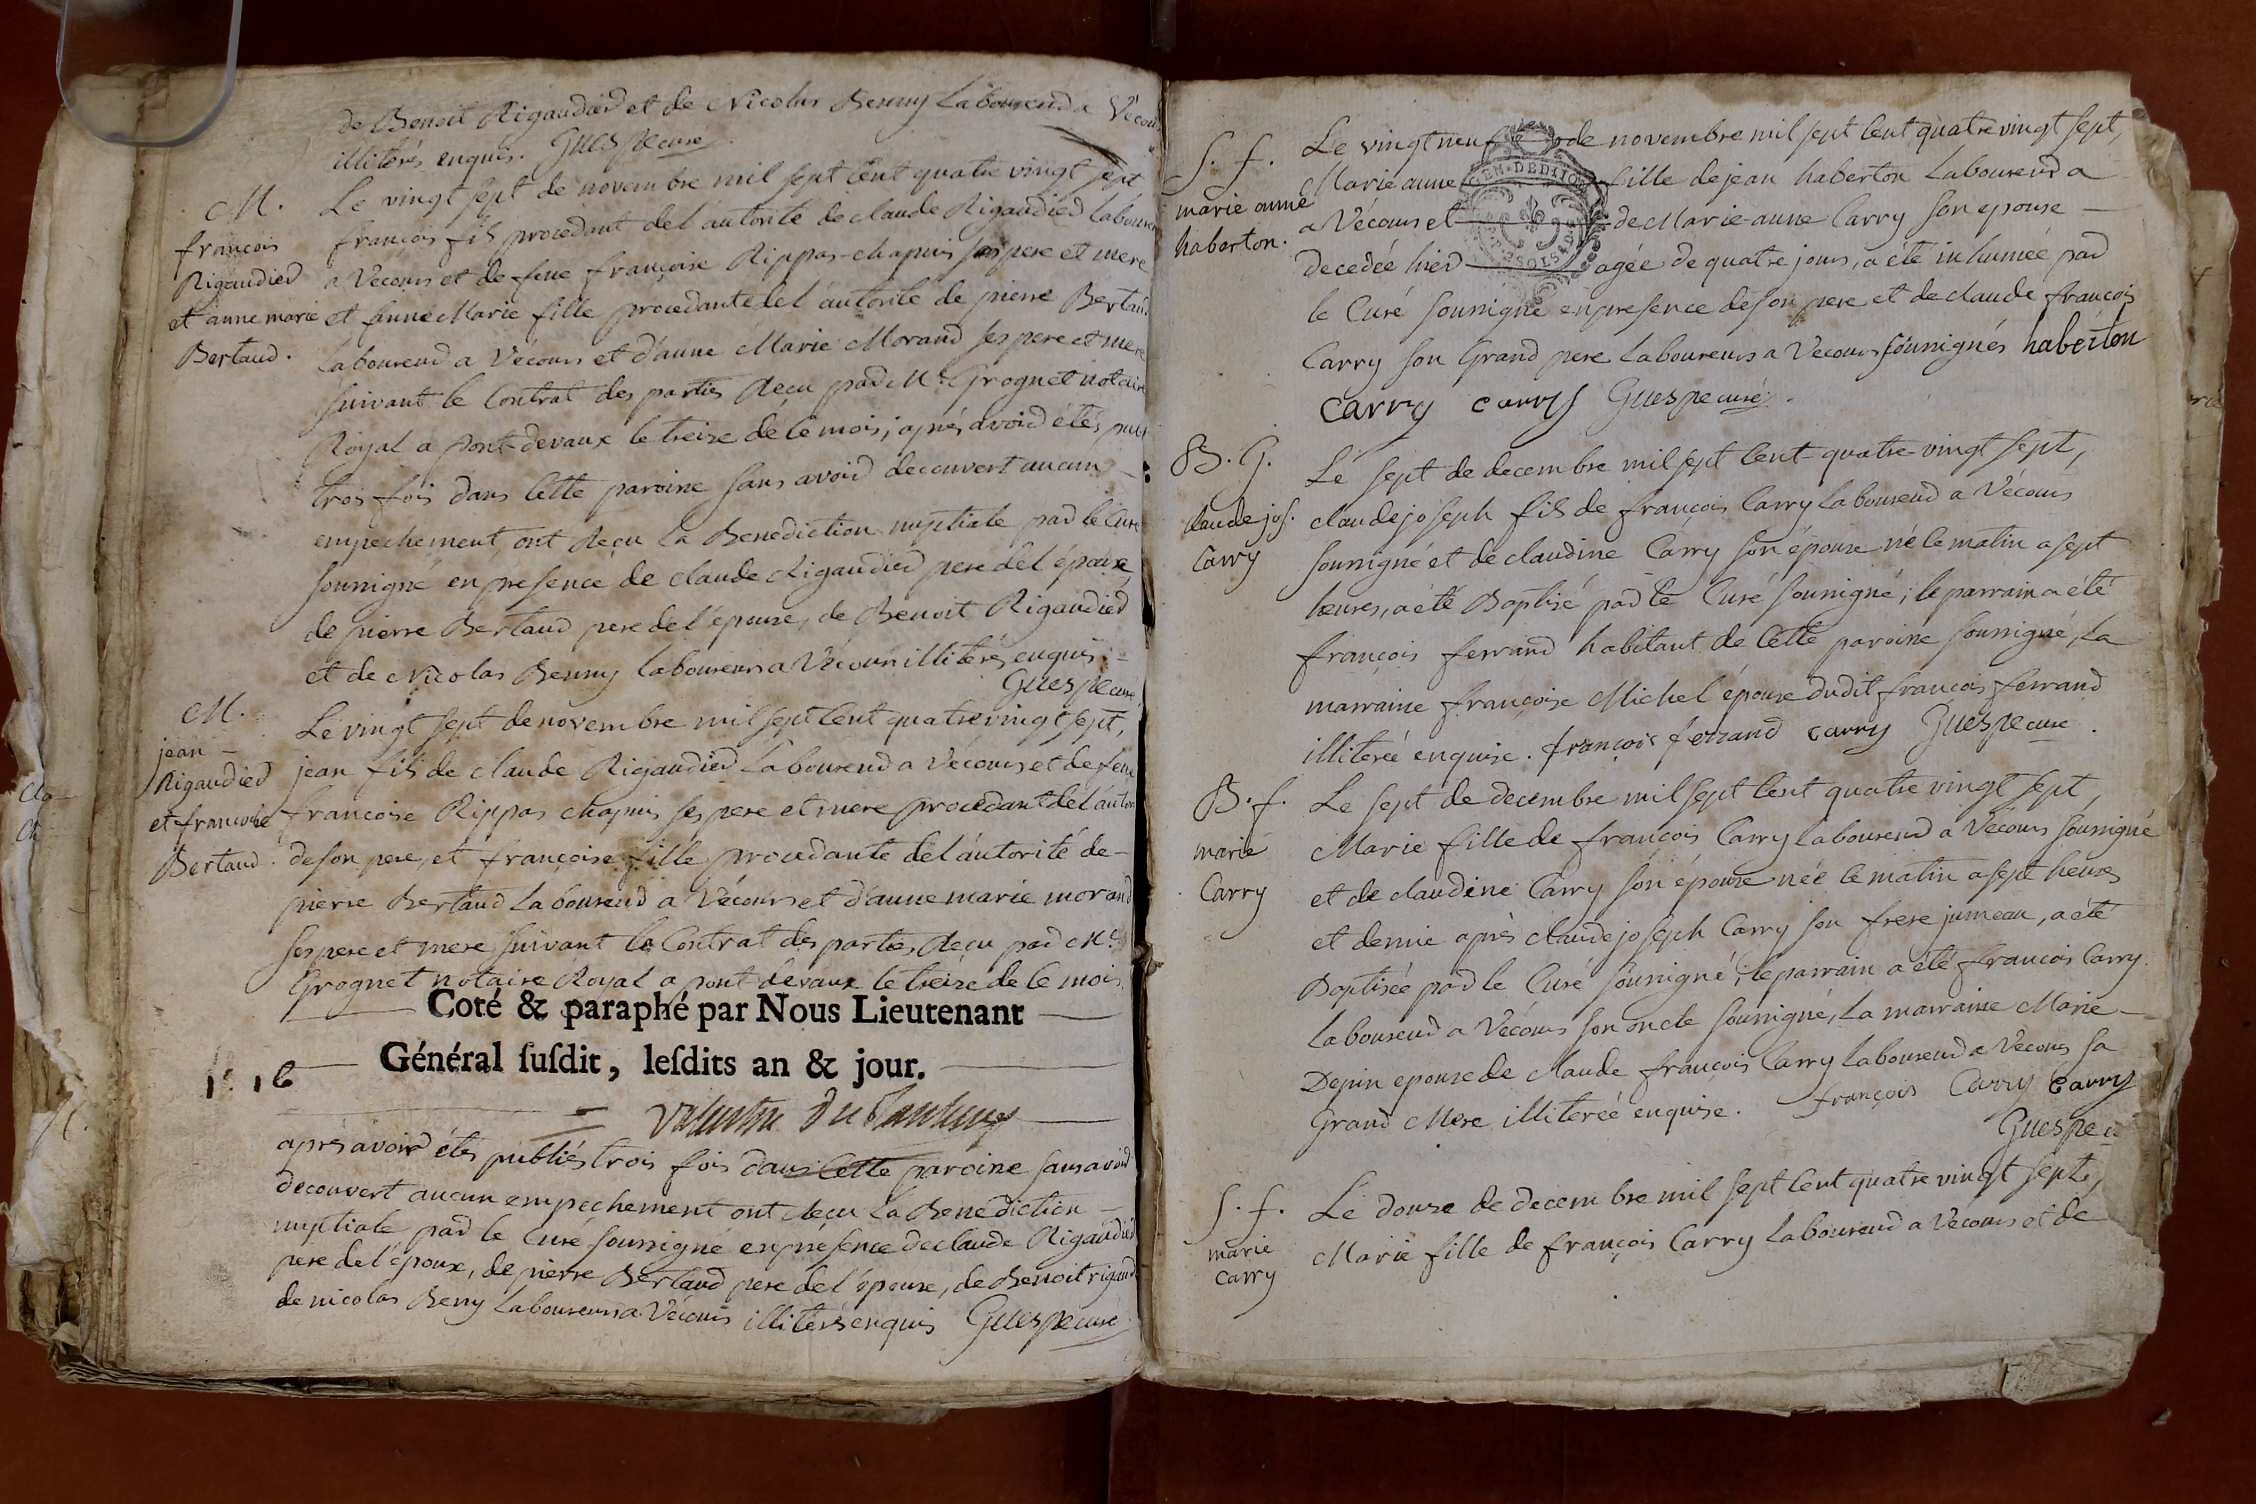 de Benoit Rigaudier et de Nicolas Benny laboureur a Vecour
illiterés enquis. Guespe curé
M.
françois
Rigaudier
et anne marie
Bertaud.
Le vingt sept de novembre mil sept cent quatre vingt sept
françois fils procedant de l'autorité de claude Rigaudier labour
a Vecours et de feue françoise Rippas-chapuis ses pere et mere
et anne Marie fille procedante de l'autorité de pierre Bertaud
laboureur a Vécours et d'anne Marie Morand ses pere et mere
suivant le Contrat des parties Reçu par Mc. Grognet notaire
Royal a pont-devaux le treize de ce mois, après avoir étés pub
trois fois dans cette paroisse sans avoir decouvert aucun
empechement, ont Reçu la Benediction nuptiale par le Curé
soussigné en presence de claude Rigaudier pere de l'époux
de pierre Bertaud pere de l'épouse, de Benoit Rigaudier
et de Nicolas Benny laboureurs a Vécours illiterés enquis
Guespe curé
M.
jean
Rigaudier
et françoise
Bertaud.
Le vingt sept de novembre mil sept cent quatre vingt sept,
jean fils de claude Rigaudier laboureur a Vécours et de feue
françoise Rippas chapuis ses pere et mere procedant de l'autor
de son pere, et françoise fille procedante de l'autorité de
pierre Bertaud laboureur a Vécours et d'anne marie morand
ses pere et mere suivant le Contrat des parties Reçu par Mc.
Grognet notaire Royal a pont-devaux le treize de ce mois,
Coté & paraphé par Nous Lieutenant
Général ſuſdit, leſdits an & jour.
16
après avoir étés publiés trois fois dans cette paroisse sans avoir
decouvert aucun empechement ont Reçu la Benediction
nuptiale par le Curé soussigné en présence de claude Rigaudier
pere de l'époux, de pierre Bertaud pere de l'épouse, de Benoit rigaud
de nicolas Beny laboureurs a Vécours illiterés enquis Guespe curé
S. f.
marie anne
haberton.
Le vingt neuf de novembre mil sept cent quatre vingt sept,
Marie anne fille de jean haberton laboureur a
a Vécours et de Marie-anne Carry son epouse
decedée hier agée de quatre jours, a été inhumée par
le Curé soussigné en presence de son pere et de claude françois
Carry son Grand pere laboureurs a Vecours soussignés haberton
carry carry Guespe curé.
B. G.
claude jos.
Carry
Le sept de decembre mil sept cent quatre-vingt sept,
claude joseph fils de françois Carry laboureur a Vécours
soussigné et de claudine Carry son épouse né le matin a sept
heures, a été Baptisé par le Curé soussigné; le parrain a été
françois ferrand habitant de cette paroisse soussigné, la
marraine françoise Michel épouse dudit françois ferrand
illiterée enquise. françois ferrand carry Guespe curé.
B. f.
marie
Carry
Le sept de decembre mil sept cent quatre vingt sept,
Marie fille de françois Carry laboureur a Vécours soussigné
et de claudine Carry son épouse née le matin a sept heures
et demie après claude joseph Carry son frere jumeau, a été
Baptisée par le Curé soussigné, le parrain a été françois Carry
laboureur a Vécours son oncle soussigné, la marraine Marie
Depin epouse de claude françois Carry laboureur a Vecours sa
Grand Mere illiterée enquise. françois Carry carry
Guespe cu
S. f.
marie
carry
Le douze de decembre mil sept cent quatre vingt sept,
Marie fille de françois Carry laboureur a Vécours et de